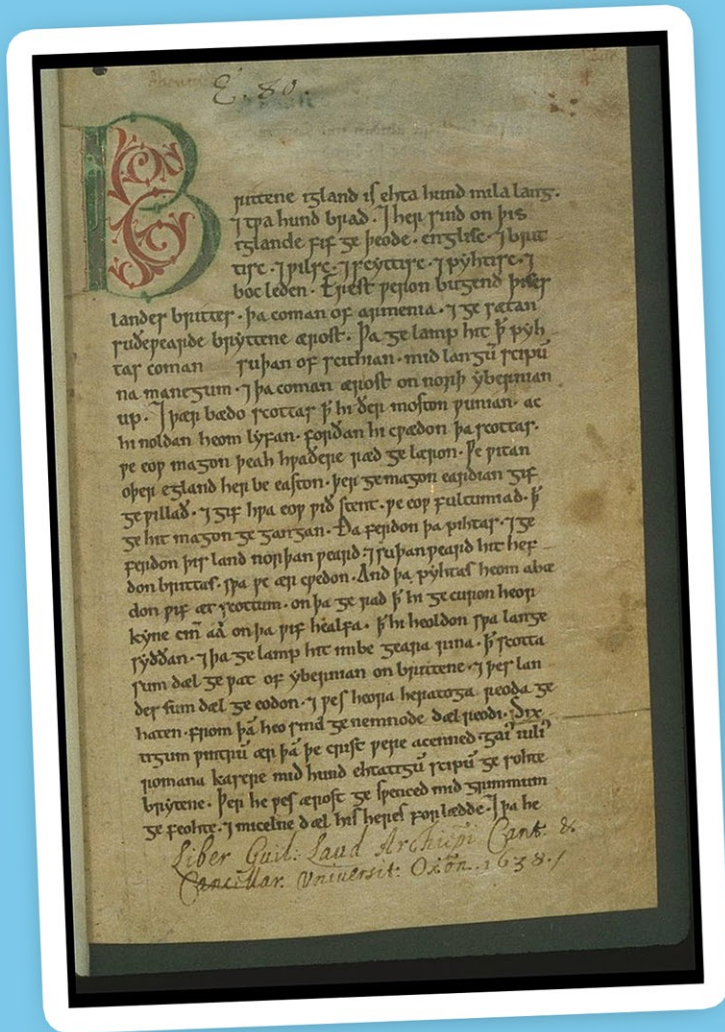 E. 80.
Brittene igland is ehta hund mila lang.
⁊ tƿa hund brad. ⁊ her sind on þis
iglande fif ge þeode. englisc. ⁊ brit
tisc. ⁊ ƿilsc. ⁊ scyttisc. ⁊ pyhtisc. ⁊
boc leden. Erest ƿeron bugend þises
landes brittes. þa coman of armenia. ⁊ ge sætan
suðeƿearde bryttene ærost. Þa ge lamp hit ꝥ pyh
tas coman suþan of scithian. mid langū scipū
na manegum. ⁊ þa coman ærost on norþ ybernian
up. ⁊ þær bædo scottas ꝥ hi ðer moston ƿunian. ac
hi noldan heom lyfan. forðan hi cƿædon þa scottas.
ƿe eoƿ magon þeah hƿaðere ræd ge læron. Ƿe ƿitan
oþer egland her be easton. þer ge magon eardian gif
ge ƿillað. ⁊ gif hƿa eoƿ ƿið stent. ƿe eoƿ fultumiad. ꝥ
ge hit magon ge gangan. Ða ferdon þa pihtas. ⁊ ge
ferdon þis land norþan ƿeard. ⁊ suþan ƿeard hit hef
don brittas. sƿa ƿe ær cƿedon. And þa pyhtas heom abæ
don ƿif æt scottum. on þa ge rad ꝥ hi ge curon heor
kyne cin̄ aa on þa ƿif healfa. ꝥ hi heoldon sƿa lange
syððan. ⁊ þa ge lamp hit imbe geara rina. ꝥ scotta
sum dæl ge ƿat of ybernian on brittene. ⁊ þes lan
des sum dæl ge eodon. ⁊ ƿes heora heratoga reoda ge
haten. from þā heo sind ge nemnode dæl reodi. Six
tigum ƿintrū ær þā þe crist ƿere acenned. gai᷒ iuli᷒
romana kasere mid hund ehtatigū scipū ge sohte
brytene. Þer he ƿes ærost ge sƿenced mid grimmum
ge feohte. ⁊ micelne dæl his heres forlædde. ⁊ þa he
Liber Guil: Laud Archiep̄i Cant: &
Cancellar. Universit: Oxōn. 1638./